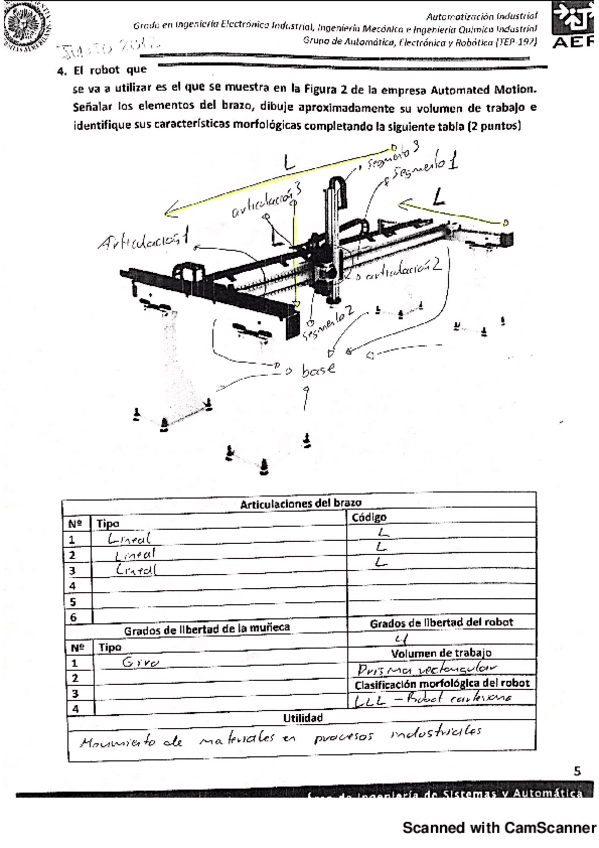 Automatización Industrial
Grado en Ingeniería Electrónica Industrial, Ingeniería Mecánica e Ingeniería Química Industrial
Grupo de Automática, Electrónica y Robótica (TEP-197)
AER
4. El robot que
se va a utilizar es el que se muestra en la Figura 2 de la empresa Automated Motion.
Señalar los elementos del brazo, dibuje aproximadamente su volumen de trabajo e
identifique sus características morfológicas completando la siguiente tabla (2 puntos)
L
segmento 3
segmento 1
articulación 3
L
L
Articulación 1
articulación 2
segmento 2
base
Articulaciones del brazo
Nº Tipo Código
1 Lineal L
2 Lineal L
3 Lineal L
4
5
6
Grados de libertad de la muñeca Grados de libertad del robot
Nº Tipo 4
1 Giro Volumen de trabajo
2 Prisma rectangular
3 Clasificación morfológica del robot
4 LLL - Robot cartesiano
Utilidad
Movimiento de materiales en procesos industriales
5
de Ingeniería de Sistemas y Automática
Scanned with CamScanner